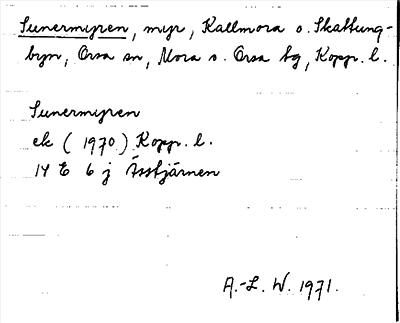 Sunermyren, myr, Kallmora o. Skattung-
byn, Orsa sn, Mora o. Orsa tg, Kopp. l.
Sunermyren
ek (1970) Kopp. l.
14 E 6 j Åsstjärnen
A.-L. W. 1971.